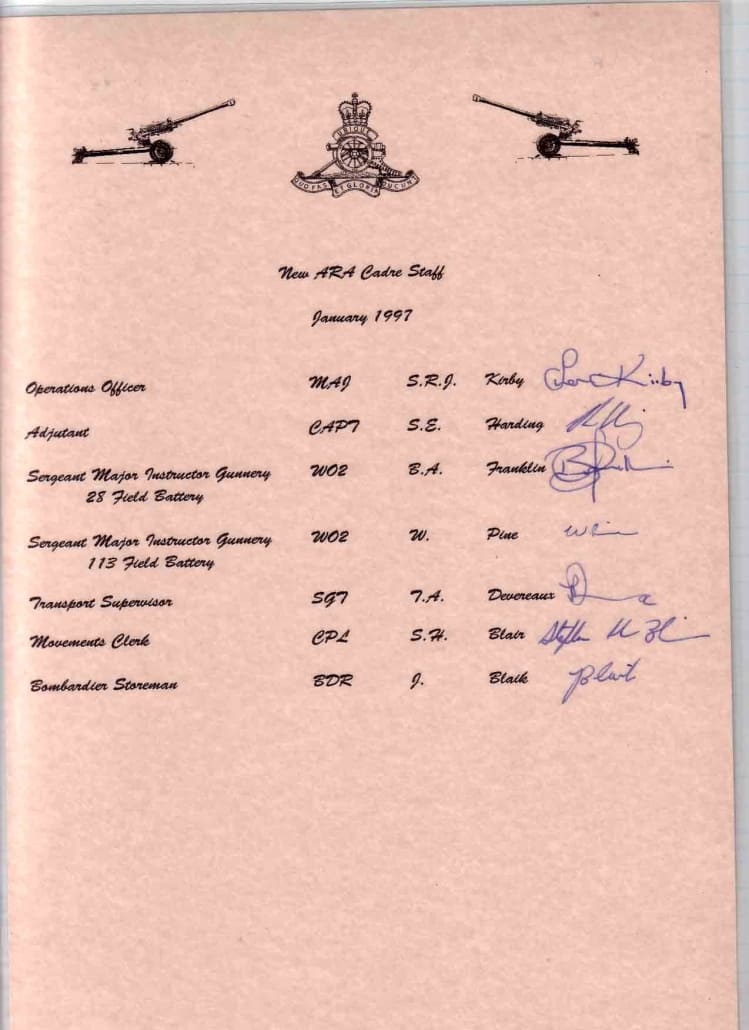 UBIQUE
QUO FAS ET GLORIA DUCUNT
New ARA Cadre Staff
January 1997
Operations Officer MAJ S.R.J. Kirby
Adjutant CAPT S.E. Harding
Sergeant Major Instructor Gunnery WO2 B.A. Franklin
28 Field Battery
Sergeant Major Instructor Gunnery WO2 W. Pine
113 Field Battery
Transport Supervisor SGT T.A. Devereaux
Movements Clerk CPL S.H. Blair
Bombardier Storeman BDR J. Blaik